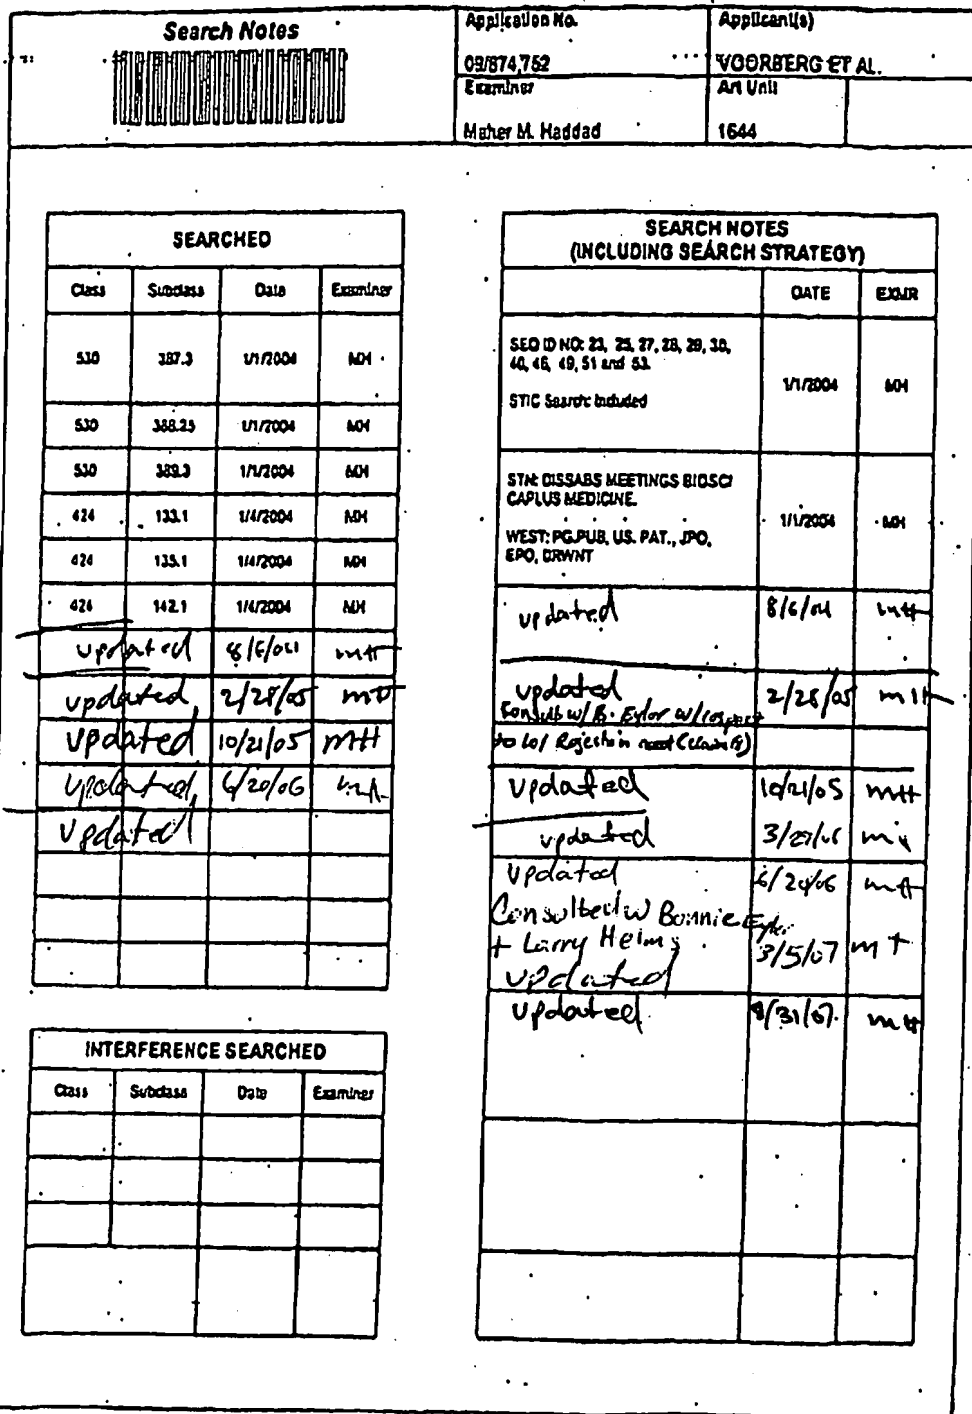 Search Notes
Application No.
09/874,752
Applicant(s)
VOORBERG ET AL.
Examiner
Maher M. Haddad
Art Unit
1644
SEARCHED
Class Subclass Date Examiner
530 387.3 1/1/2004 MH
530 388.25 1/1/2004 MH
530 389.3 1/1/2004 MH
424 133.1 1/4/2004 MH
424 135.1 1/4/2004 MH
424 142.1 1/4/2004 MH
updated 8/6/04 MH
updated 2/28/05 MH
updated 10/21/05 MH
updated 6/20/06
updated
INTERFERENCE SEARCHED
Class Subclass Date Examiner
SEARCH NOTES
(INCLUDING SEARCH STRATEGY)
DATE EXMR
SEQ ID NO: 23, 25, 27, 28, 29, 30,
40, 46, 49, 51 and 53.
STIC Search included
1/1/2004 MH
STN: DISSABS MEETINGS BIOSCI
CAPLUS MEDICINE.
WEST: PG.PUB, US. PAT., JPO,
EPO, DRWNT
1/1/2004 MH
updated 8/6/04 MH
updated 2/28/05 MH
w/ B. w/
to
updated 10/21/05 MH
updated 3/27/06
updated 6/20/06 MH
Consulted w Bonnie Eyler
+ Larry Helms 3/5/07 MH
updated
updated 8/31/07 MH